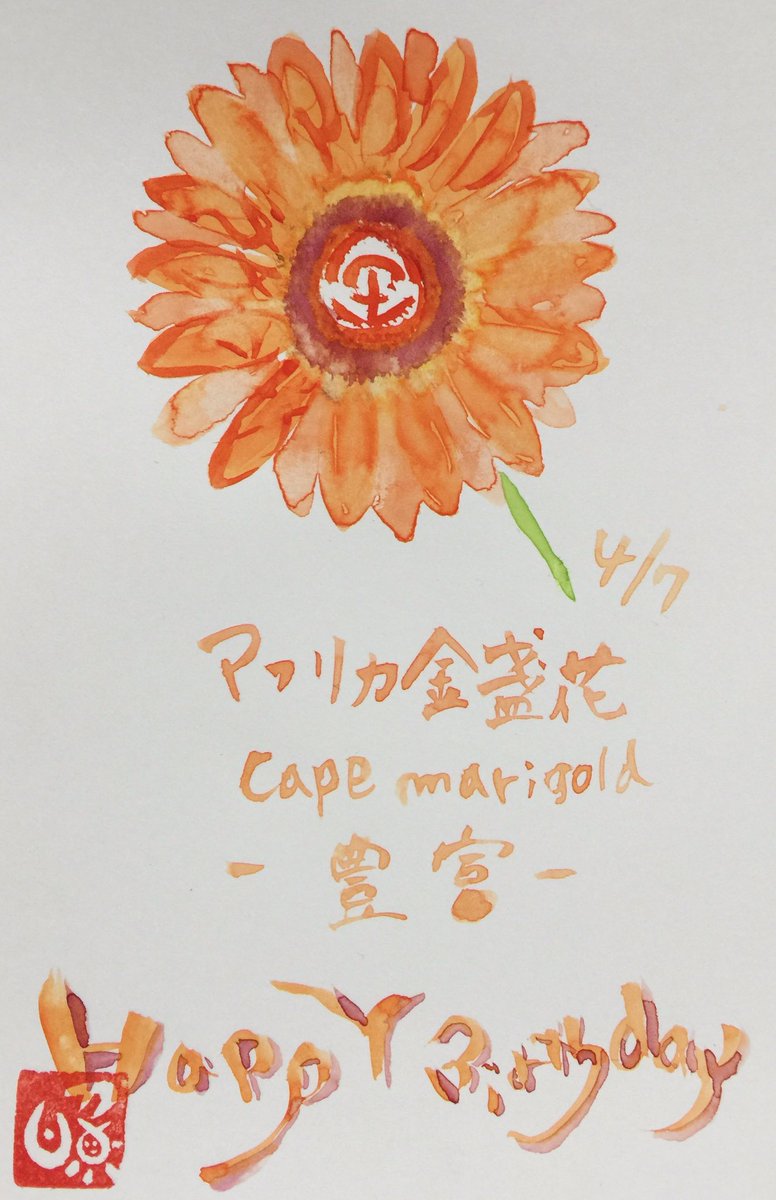 4/7
アフリカ金盞花
cape marigold
-豊富-
Happy Birthday